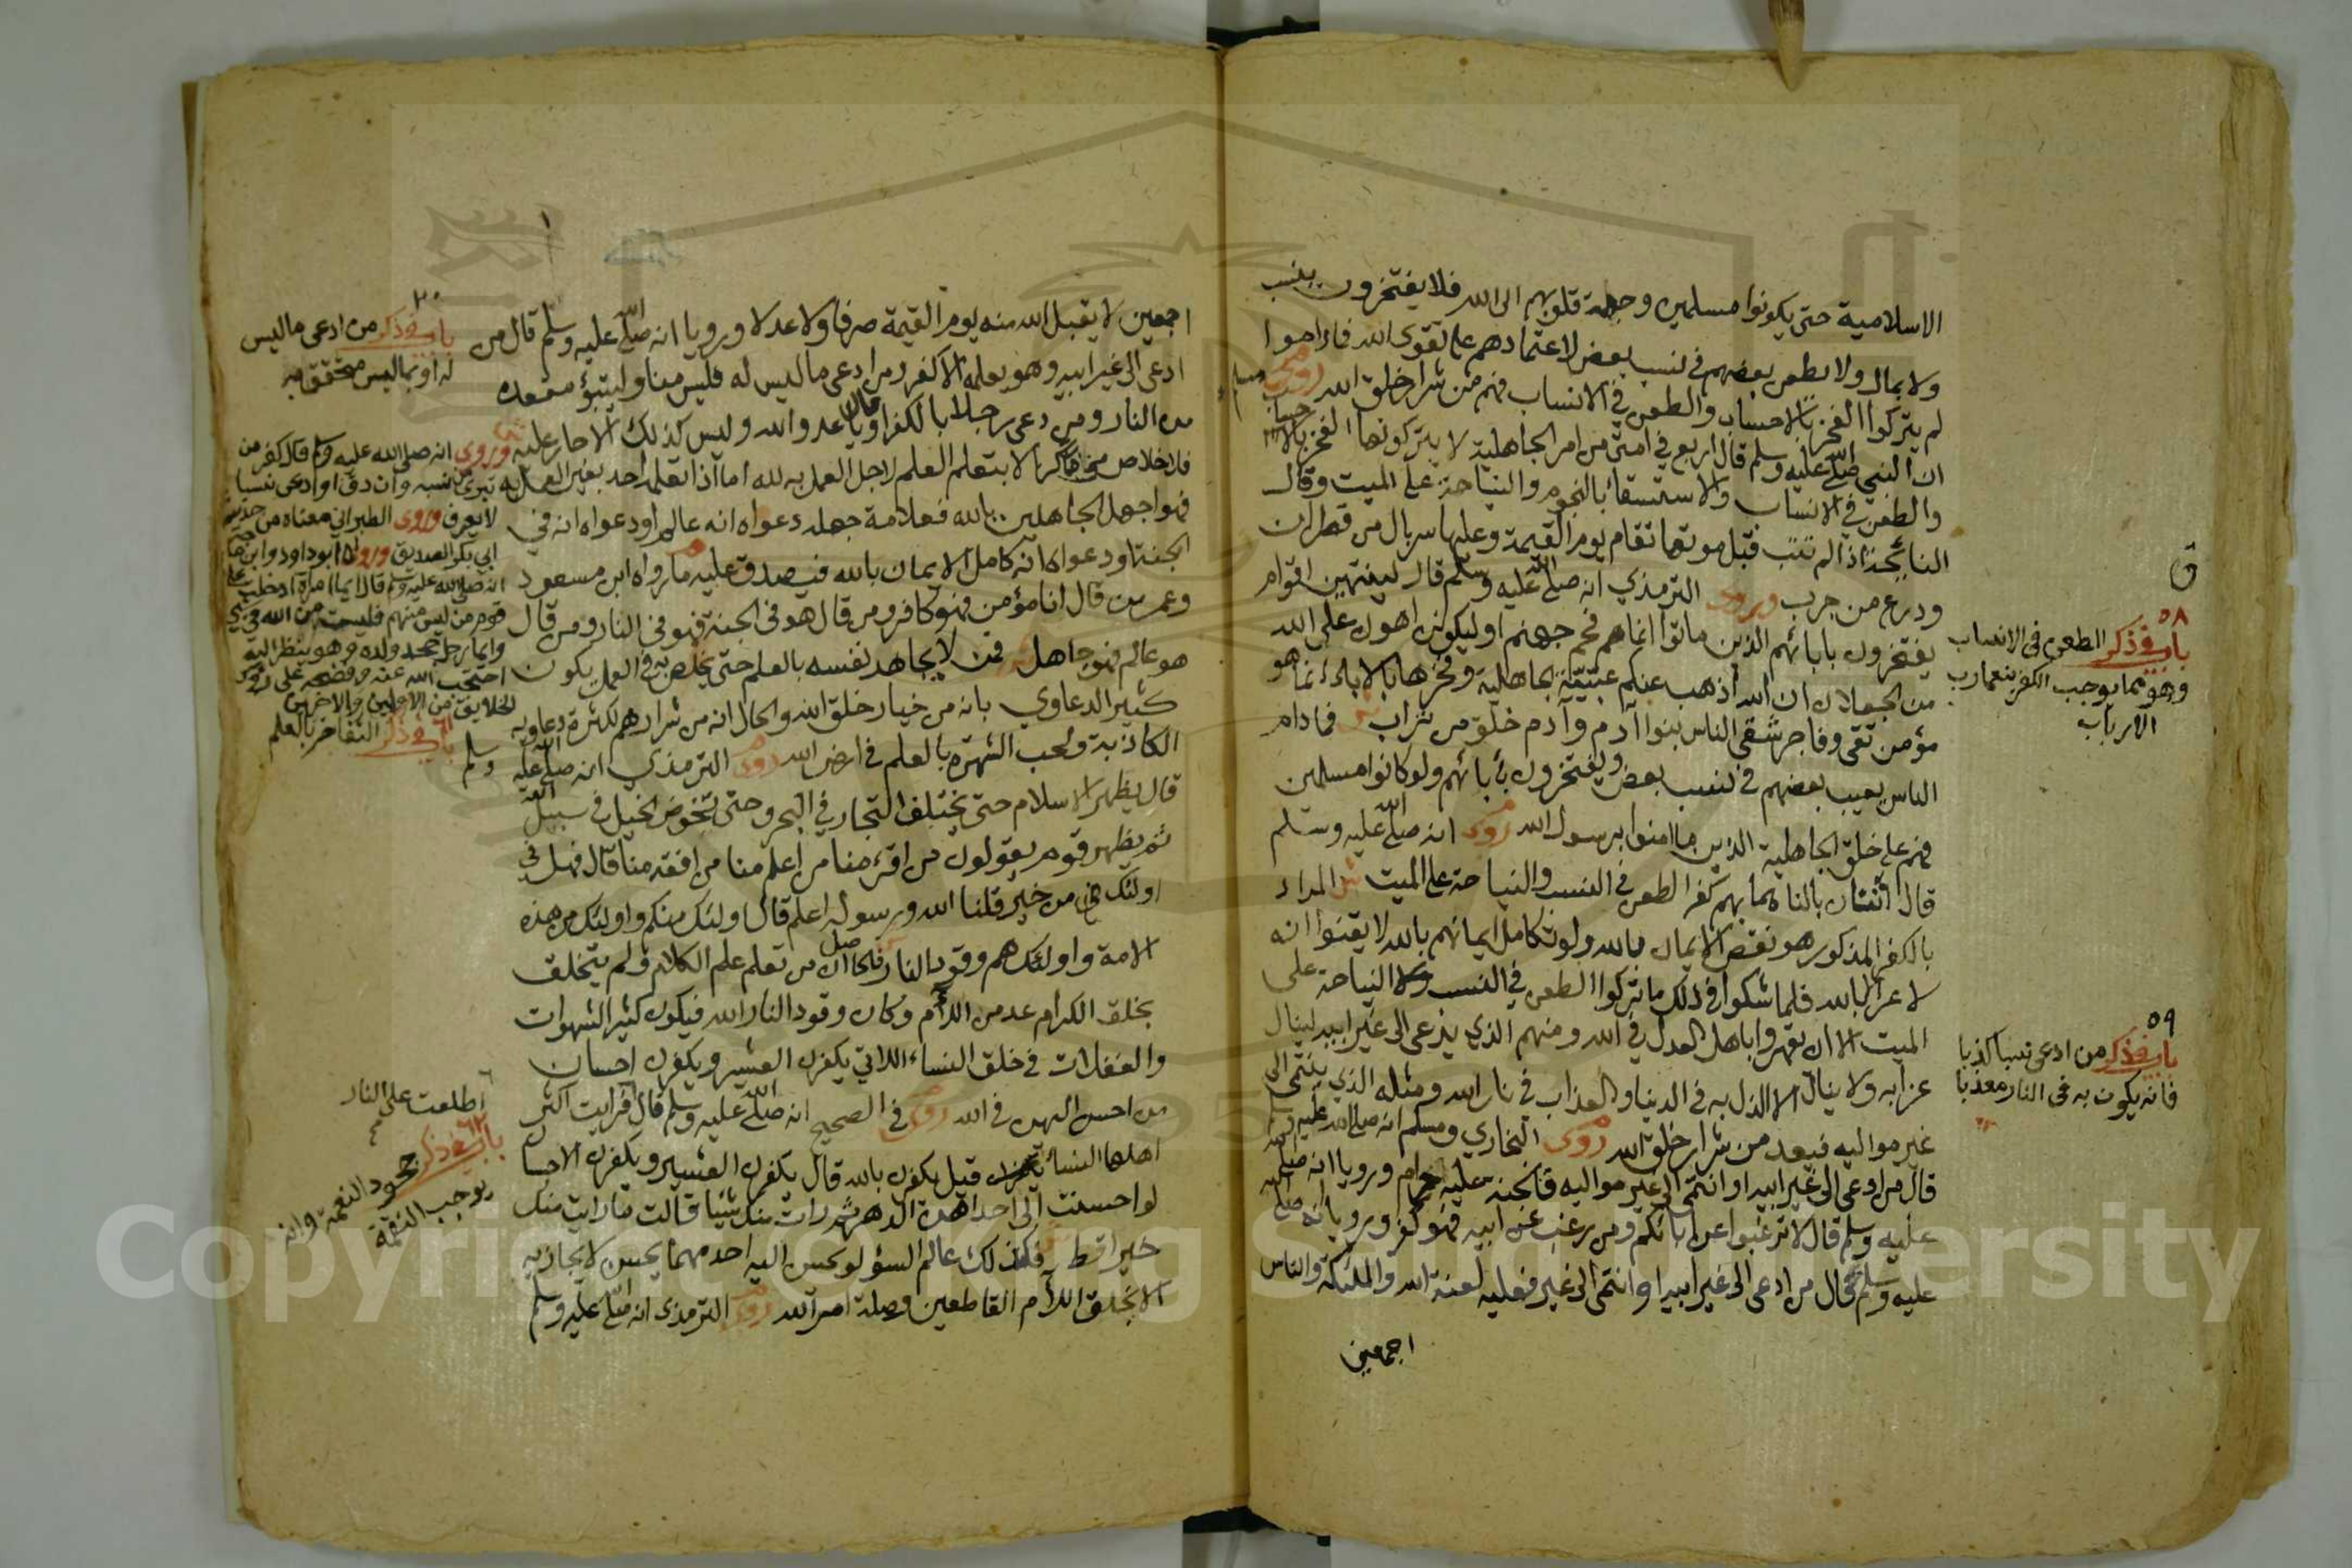 الاسلامية حتى يكونوا مسلمين وجهة قلوبهم الى الله فلا يفتخرون بنسب
ولا بمال ولا يطعن بعضهم في نسب بعض لاعتمادهم على تقوى الله فاذا هموا
لم يتركوا الفخر بالاحساب والطعن في الانساب فهم من شرار خلق الله روى مسلم
ان النبي صلى الله عليه وسلم قال اربع في امتي من امر الجاهلية لا يتركونها الفخر بالاحساب
والطعن في الانساب والاستسقا بالنجوم والنياحة على الميت وقال
النائحة اذا لم تتب قبل موتها تقام يوم القيمة وعليها سربال من قطران
ودرع من جرب وروى الترمذي انه صلى الله عليه وسلم قال لينتهين اقوام
يفتخرون بابائهم الذين ماتوا انما هم فحم جهنم او ليكونن اهون على الله
من الجعلان ان الله اذهب عنكم عبية الجاهلية وفخرها بالاباء انما هو
مؤمن تقى وفاجر شقى الناس بنوا آدم وآدم خلق من تراب فمادام
الناس يعيب بعضهم في نسب بعض ويفتخرون بأبائهم ولو كانوا مسلمين
فهم على خلق الجاهلية الذين ما امنوا برسول الله روى انه صلى الله عليه وسلم
قال اثنتان بالناس هما بهم كفر الطعن في النسب والنياحة على الميت المراد
بالكفر المذكور هو نقص الايمان بالله ولو تكامل ايمانهم بالله لايقنوا انه
لا عز الا بالله فلما شكوا في ذلك ما تركوا الطعن في النسب ولا النياحة على
الميت الا ان يقهروا باهل العدل في الله ومنهم الذي يدعى الى غير ابيه لينال
عزا به ولا ينال الا الذل به في الدنيا والعذاب في نار الله ومثله الذي ينتمى الى
غير مواليه فيعد من شرار خلق الله روى البخاري ومسلم انه صلى الله عليه وسلم
قال من ادعى الى غير ابيه او انتمى الى غير مواليه فالجنة عليه حرام ورويا انه صلى الله
عليه وسلم قال لا ترغبوا عن ابائكم ومن رغب عن ابيه فهو كفر ورويا انه صلى
عليه وسلم قال من ادعى الى غير ابيه او انتمى الى غير فعليه لعنة الله والملئكة والناس
اجمعين
ق
٥٨
باب في ذكر الطعن في الانساب
وهو مما يوجب الكفر بنعما رب
الارباب
٥٩
باب في ذكر من ادعى نسبا كذبا
فانه يكون به في النار معذبا
اجمعين لا يقبل الله منه يوم القيمة صرفا ولا عدلا ورويا انه صلى الله عليه وسلم قال من
ادعى الى غير ابيه وهو يعلمه الا كفر ومن ادعى ما ليس له فليس منا وليتبؤ مقعده
من النار ومن دعى رجلا بالكفر او قال يا عدو الله وليس كذلك الا حار عليه
فلا خلاص الا بتعلم العلم لاجل العمل به لله اما اذا تعلم احد بغير العمل به
فهو اجهل الجاهلين بالله فعلامة جهله دعواه انه عالم او دعواه انه في
الجنة او دعواه انه كامل الايمان بالله فيصدق عليه ما رواه ابن مسعود
وعمر من قال انا مؤمن فهو كافر ومن قال هو في الجنة فهو في النار ومن قال
هو عالم فهو جاهل فمن لا يجاهد نفسه بالعلم حتى يخلص به في العمل يكون
كثير الدعاوي بانه من خيار خلق الله والحال انه من شرارهم لكثرة دعاويه
الكاذبة ولحب الشهرة بالعلم في ارض الله روى الترمذي انه صلى الله عليه وسلم
قال يظهر الاسلام حتى يختلف التجار في البحر وحتى تخوض الخيل في سبيل الله
ثم يظهر قوم يقولون من اقرء منا من اعلم منا من افقه منا قال فهل في
اولئك من خير قلنا الله ورسوله اعلم قال اولئك منكم واولئك من هذه
الامة واولئك هم وقود النار فلما ان من تعلم علم الكلام ولم يتخلق
بخلق الكرام عد من اللأم وكان وقود النار الله فيكون كثير الشهوات
والغفلات في خلق النساء اللاتي يكفرن العشير ويكفرن احسان
من احسن اليهن في الله روى في الصحيح انه صلى الله عليه وسلم قال فرايت اكثر
اهلها النساء قيل يكفرن بالله قال يكفرن العشير ويكفرن الاحسان
لو احسنت الى احداهن الدهر ثم رات منك شيئا قالت ما رايت منك
خيرا قط فكذلك عالم السؤ لو يحسن اليه احد مهما يحسن لا يجازيه
الا بخلق اللأم القاطعين وصلة امر الله روى الترمذي انه صلى الله عليه وسلم
٦٠
باب في ذكر من ادعى ما ليس
له او بما ليس متحقق به
وروى انه صلى الله عليه وسلم قال كفر من
تبرئ من نسبه وان دق او ادعى نسبا
لا يعرف وروى الطبراني معناه من حديث
ابي بكر الصديق وروى ابو داود وابن
انه صلى الله عليه وسلم قال ايما امرأة ادخلت على
قوم من ليس منهم فليست من الله في شيء
وايما رجل جحد ولده وهو ينظر اليه
احتجب الله عنه وفضحه على رؤس
الخلايق من الاولين والاخرين
باب في ذكر التفاخر بالعلم
اطلعت على النار
٦٢
باب في ذكر جحود النعمة وانه
يوجب النقمة
Copyright © King Saud University